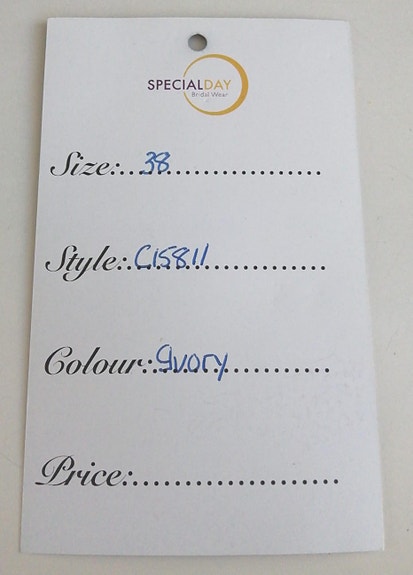 SPECIALDAY
Bridal Wear
Size:...38...................
Style:..C15811..............
Colour:.Ivory................
Price:....................